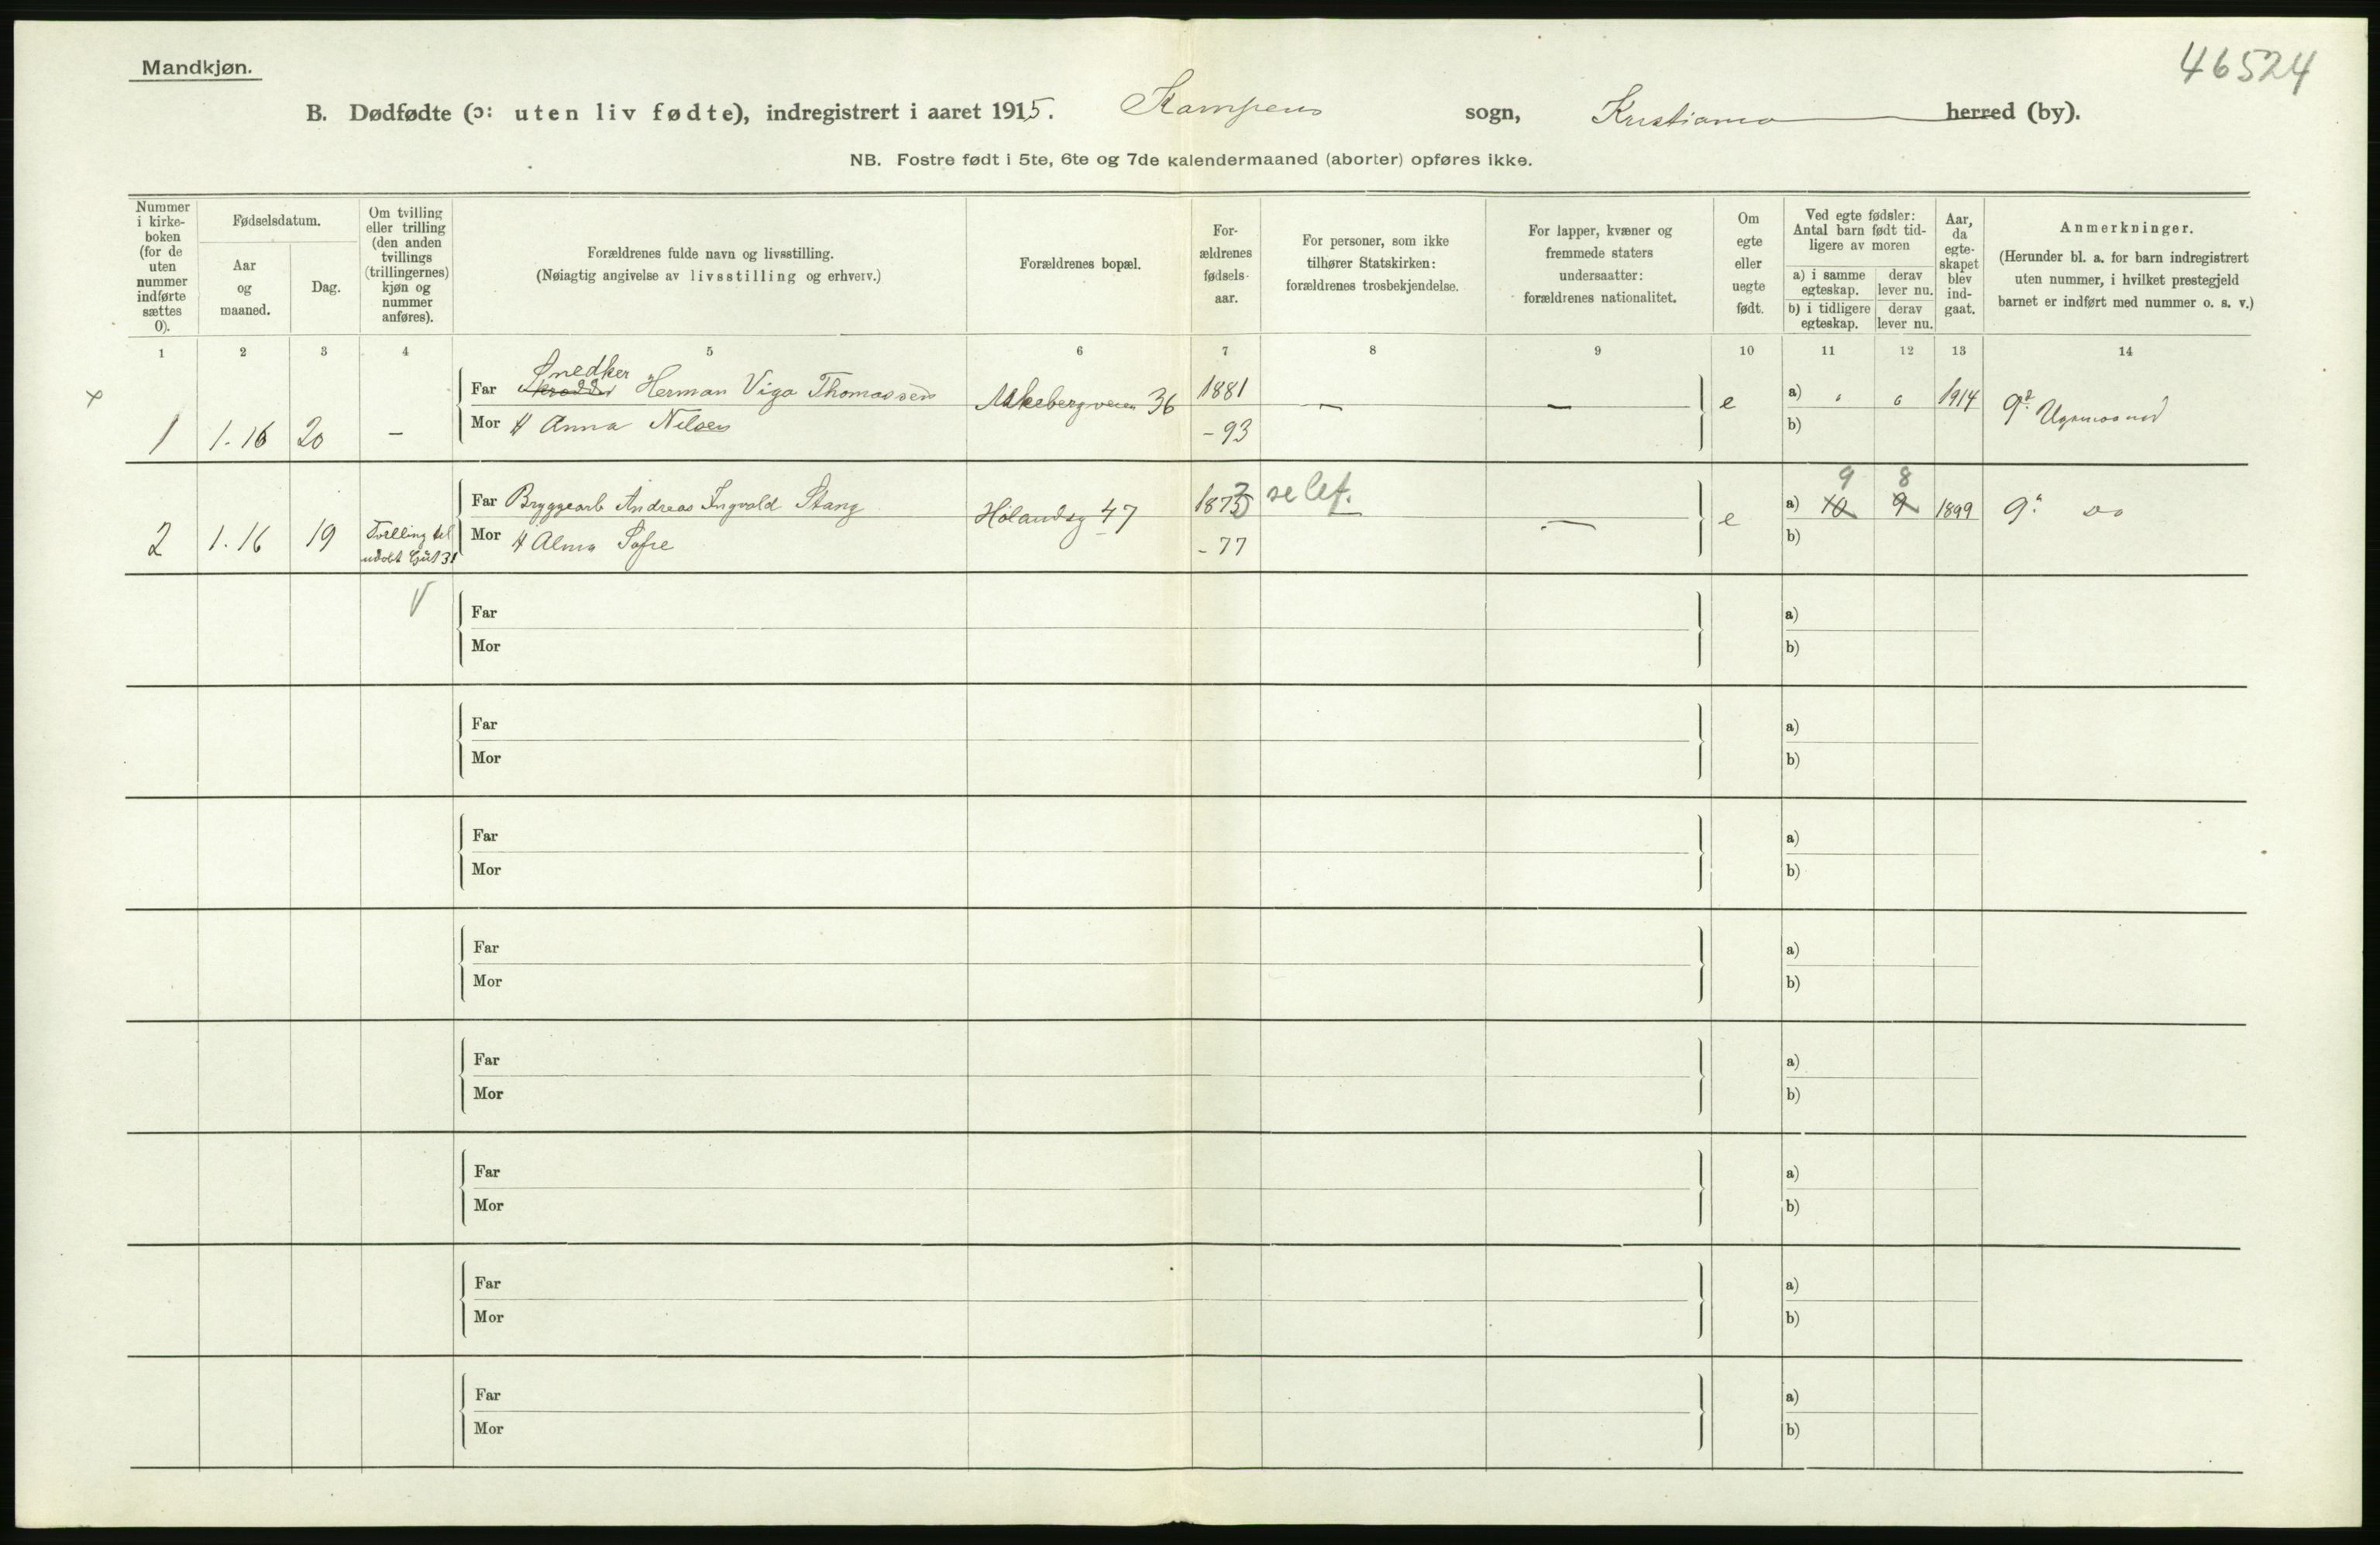 46524
Mandkjøn.
B. Dødfødte (ɔ: uten liv fødte), indregistrert i aaret 1915. Kampens sogn, Kristiania herred (by).
NB. Fostre født i 5te, 6te og 7de kalendermaaned (aborter) opføres ikke.
Nummer
i kirke-
boken
(for de
uten
nummer
indførte
sættes
0).
Fødselsdatum.
Aar
og
maaned.
Dag.
Om tvilling
eller trilling
(den anden
tvillings
(trillingernes)
kjøn og
nummer
anføres).
Forældrenes fulde navn og livsstilling.
(Nøiagtig angivelse av livsstilling og erhverv.)
Forældrenes bopæl.
For-
ældrenes
fødsels-
aar.
For personer, som ikke
tilhører Statskirken:
forældrenes trosbekjendelse.
For lapper, kvæner og
fremmede staters
undersaatter:
forældrenes nationalitet.
Om
egte
eller
uegte
født.
Ved egte fødsler:
Antal barn født tid-
ligere av moren
a) i samme
egteskap.
derav
lever nu.
b) i tidligere
egteskap.
derav
lever nu.
Aar,
da
egte-
skapet
blev
ind-
gaat.
Anmerkninger.
(Herunder bl. a. for barn indregistrert
uten nummer, i hvilket prestegjeld
barnet er indført med nummer o. s. v.)
1 2 3 4 5 6 7 8 9 10 11 12 13 14
Snedker
Far Skrædder Herman Vigo Thomassen Aakebergveien 36 1881 — — e a) " " 1914 9de
1 1.16 20 – Mor H Anna Nilsen – 93 b)
9 8
Far Bryggearb Andreas Ingvald Stang Hølandsg 47 1873 se let. — e a) 10 9 1899 9. do
2 1.16 19 Tvilling til Mor H Alma Sofie – 77 b)
udøbt Gut 31
V
Far a)
Mor b)
Far a)
Mor b)
Far a)
Mor b)
Far a)
Mor b)
Far a)
Mor b)
Far a)
Mor b)
Far a)
Mor b)
Far a)
Mor b)